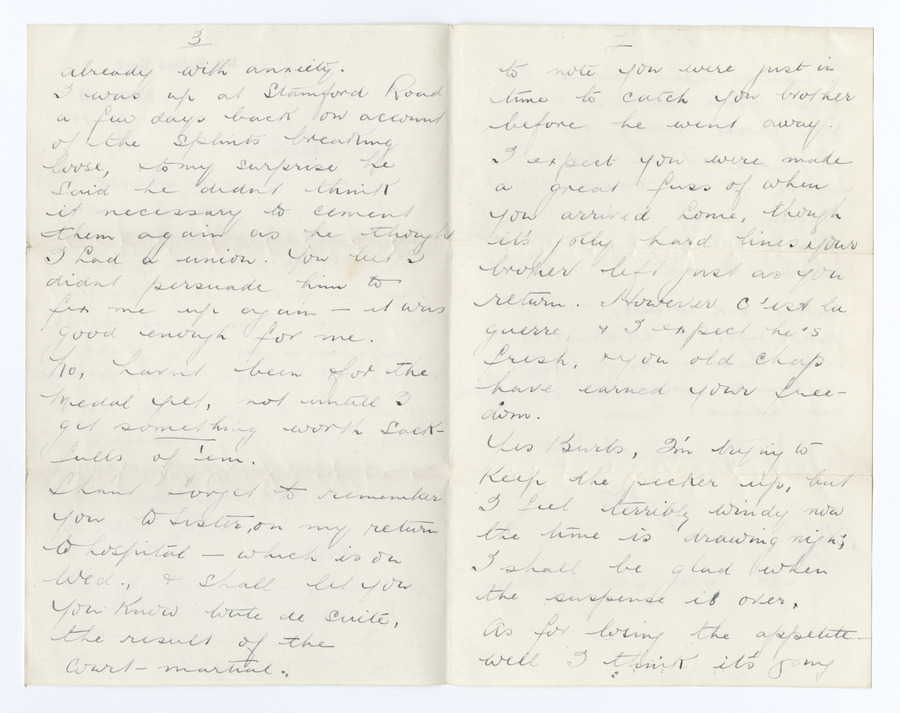 3
already with anxiety.
I was up at Stamford Road
a few days back on account
of the splints breaking
loose, to my surprise he
said he didnt think
it necessary to cement
them again as he thought
I had a union. You bet I
didnt persuade him to
fix me up again — it was
good enough for me.
No, havnt been for the
medal yet, not untill I
get something worth sack-
fulls of 'em.
Shant forget to remember
you to sister, on my return
to hospital — which is on
Wed., & shall let you
you know toute de suite,
the result of the
court-martial.
to note you were just in
time to catch you brother
before he went away.
I expect you were made
a great fuss of when
you arrived home, though
it's jolly hard lines your
brother left just as you
return. However c'est la
guerre, & I expect he's
fresh, & you old chap
have earned your free-
dom.
Yes Burbs, I'm trying to
keep the pecker up, but
I feel terribly windy now
the time is drawing nigh;
I shall be glad when
the suspense is over.
As for losing the appetite —
well I think it's going